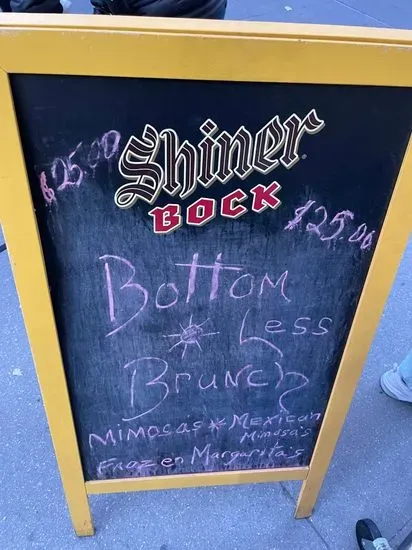 Shiner
BOCK
$25.00
$25.00
Bottom
Less
Brunch
Mimosa's * Mexican
Mimosa's
Frozen Margarita's